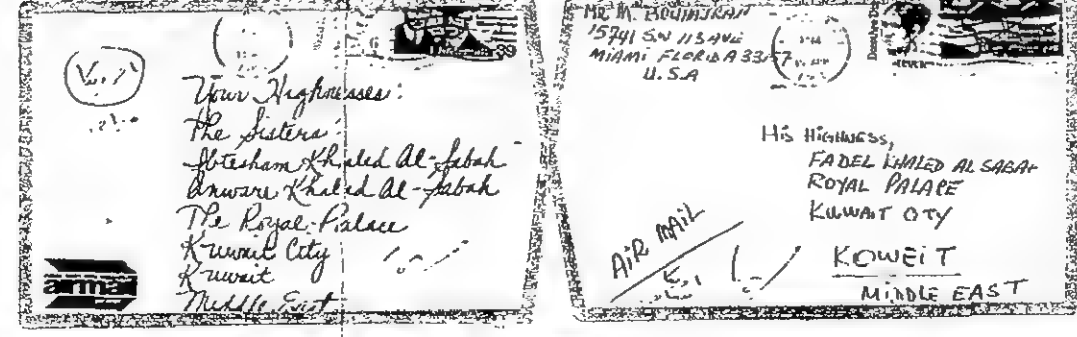 Your Highnesses:
The Sisters:
Abtesham Khaled Al-Sabah
Anware Khaled Al-Sabah
The Royal Palace
Kuwait City
Kuwait
Middle East
airmail
39
Mr M.
15741 SW 113 AVE
MIAMI FLORIDA
U.S.A
His Highness,
FADEL KHALED AL SABAH
ROYAL PALACE
KUWAIT CITY
AIR MAIL
KOWEIT
MIDDLE EAST